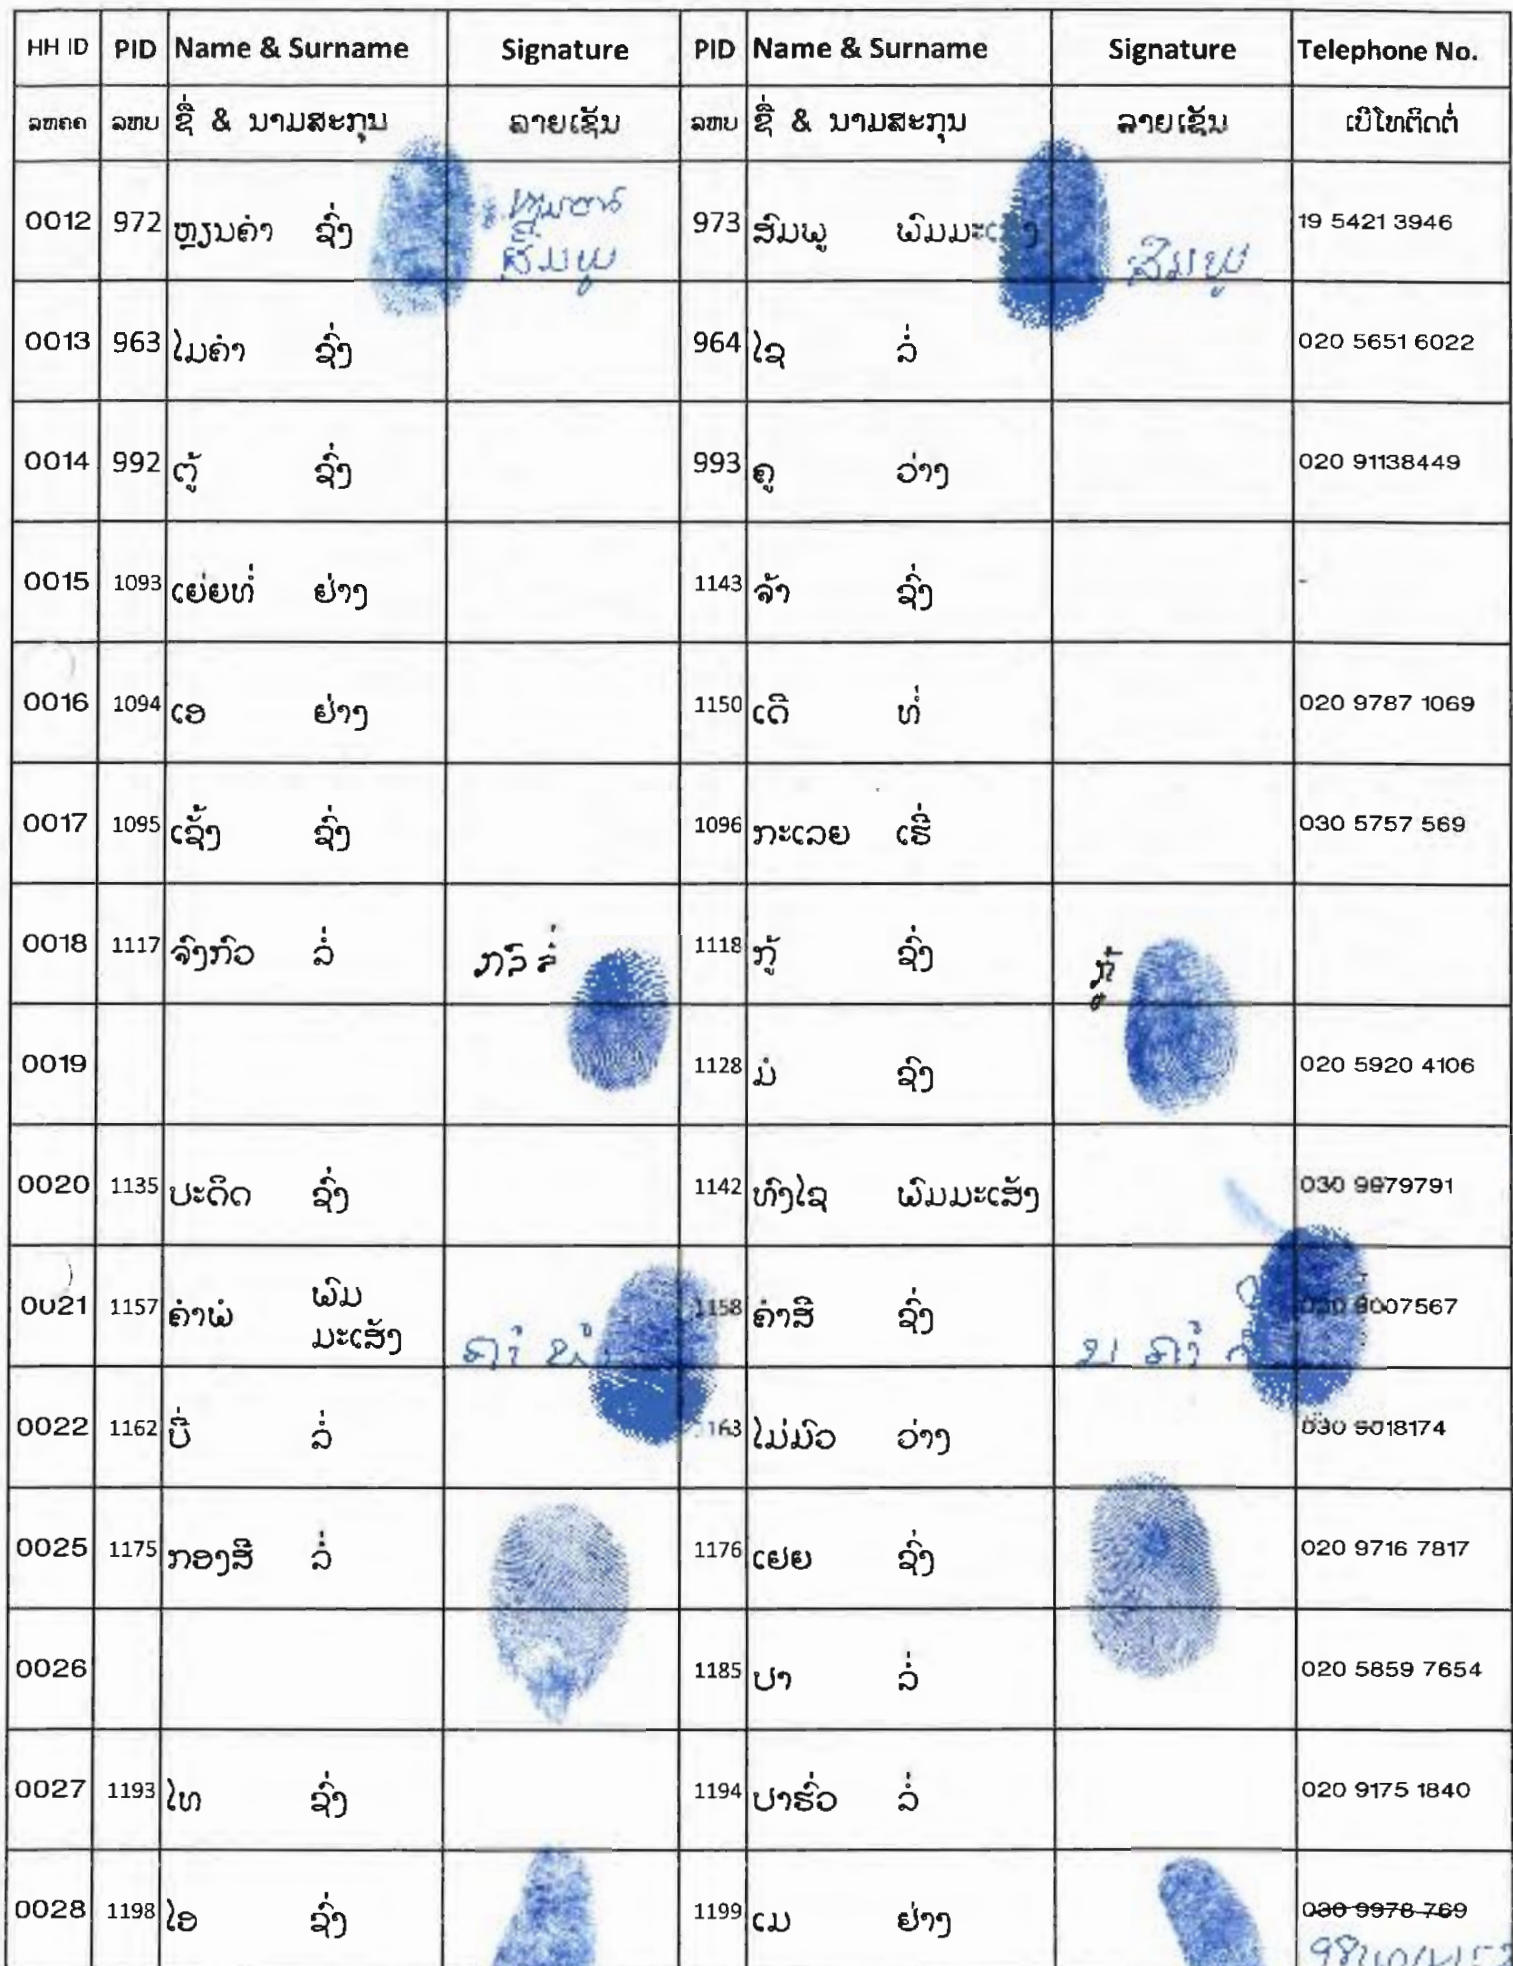 HH ID PID Name & Surname Signature PID Name & Surname Signature Telephone No.
ລຫຄຄ ລຫບ ຊື່ & ນາມສະກຸນ ລາຍເຊັນ ລຫບ ຊື່ & ນາມສະກຸນ ລາຍເຊັນ ເບີໂທຕິດຕໍ່
0012 972 ຫຼຽນຄຳ ຊົ່ງ 973 ສົມພູ 19 5421 3946
ສົມພູ ສົມພູ
0013 963 ໄມຄຳ ຊົ່ງ 964 ໄຊ ລໍ່ 020 5651 6022
0014 992 ຕູ້ ຊົ່ງ 993 ຄູ ວ່າງ 020 91138449
0015 1093 ເຍ່ຍທໍ່ ຢ່າງ 1143 ຈ້າ ຊົ່ງ -
0016 1094 ເອ ຢ່າງ 1150 ເດີ ທໍ່ 020 9787 1069
0017 1095 ເຊັ້ງ ຊົ່ງ 1096 ກະເລຍ ເຮີ່ 030 5757 569
0018 1117 ຈົ່ງກົວ ລໍ່ 1118 ກູ້ ຊົ່ງ
0019 1128 ມໍ ຊົ່ງ 020 5920 4106
0020 1135 ປະດິດ ຊົ່ງ 1142 ທົ່ງໄຊ ພົມມະເສັ້ງ 030 9979791
0021 1157 ຄຳພໍ ພົມ 1158 ຄຳສີ ຊົ່ງ 9007567
ມະເສັ້ງ
ຄຳ ພໍ
0022 1162 ບີ່ ລໍ່ 1163 ໄມ່ມົວ ວ່າງ 030 9018174
0025 1175 ກອງສີ ລໍ່ 1176 ເຢຍ ຊົ່ງ 020 9716 7817
0026 1185 ປາ ລໍ່ 020 5859 7654
0027 1193 ໄທ ຊົ່ງ 1194 ປາຮົ່ວ ລໍ່ 020 9175 1840
0028 1198 ໄອ ຊົ່ງ 1199 ເມ ຢ່າງ 030 9978 769